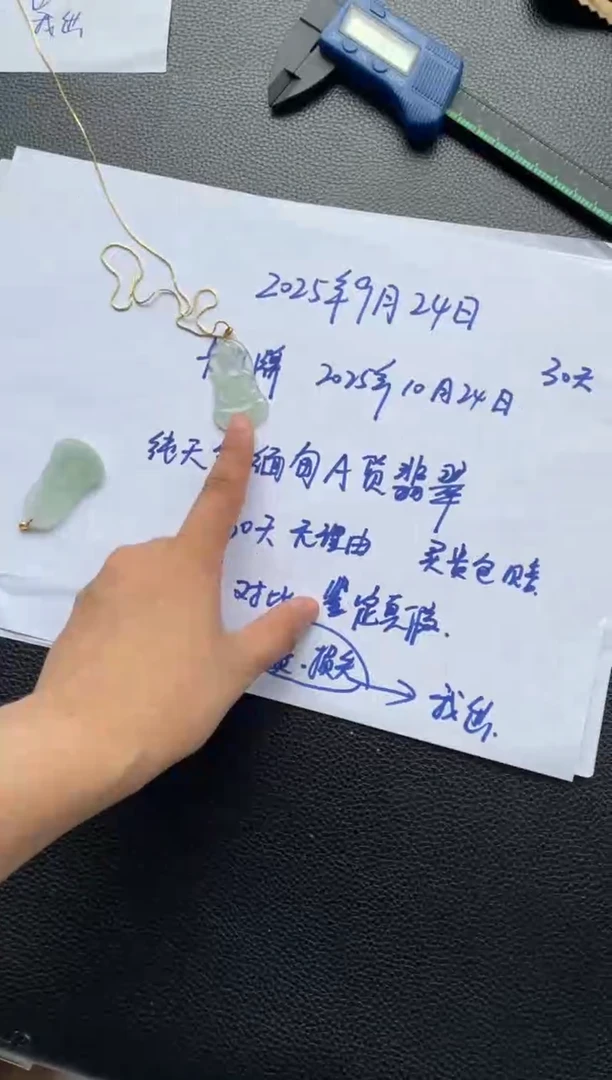 我出
2025年9月24日
牌 2025年10月24日 30天
纯天 缅甸A货翡翠
30天 无理由 买贵包赔
对比 鉴定真假.
损失 → 我出.